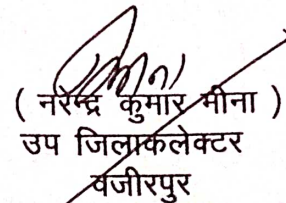 ( नरेन्द्र कुमार मीना )
उप जिलाकलेक्टर
वजीरपुर